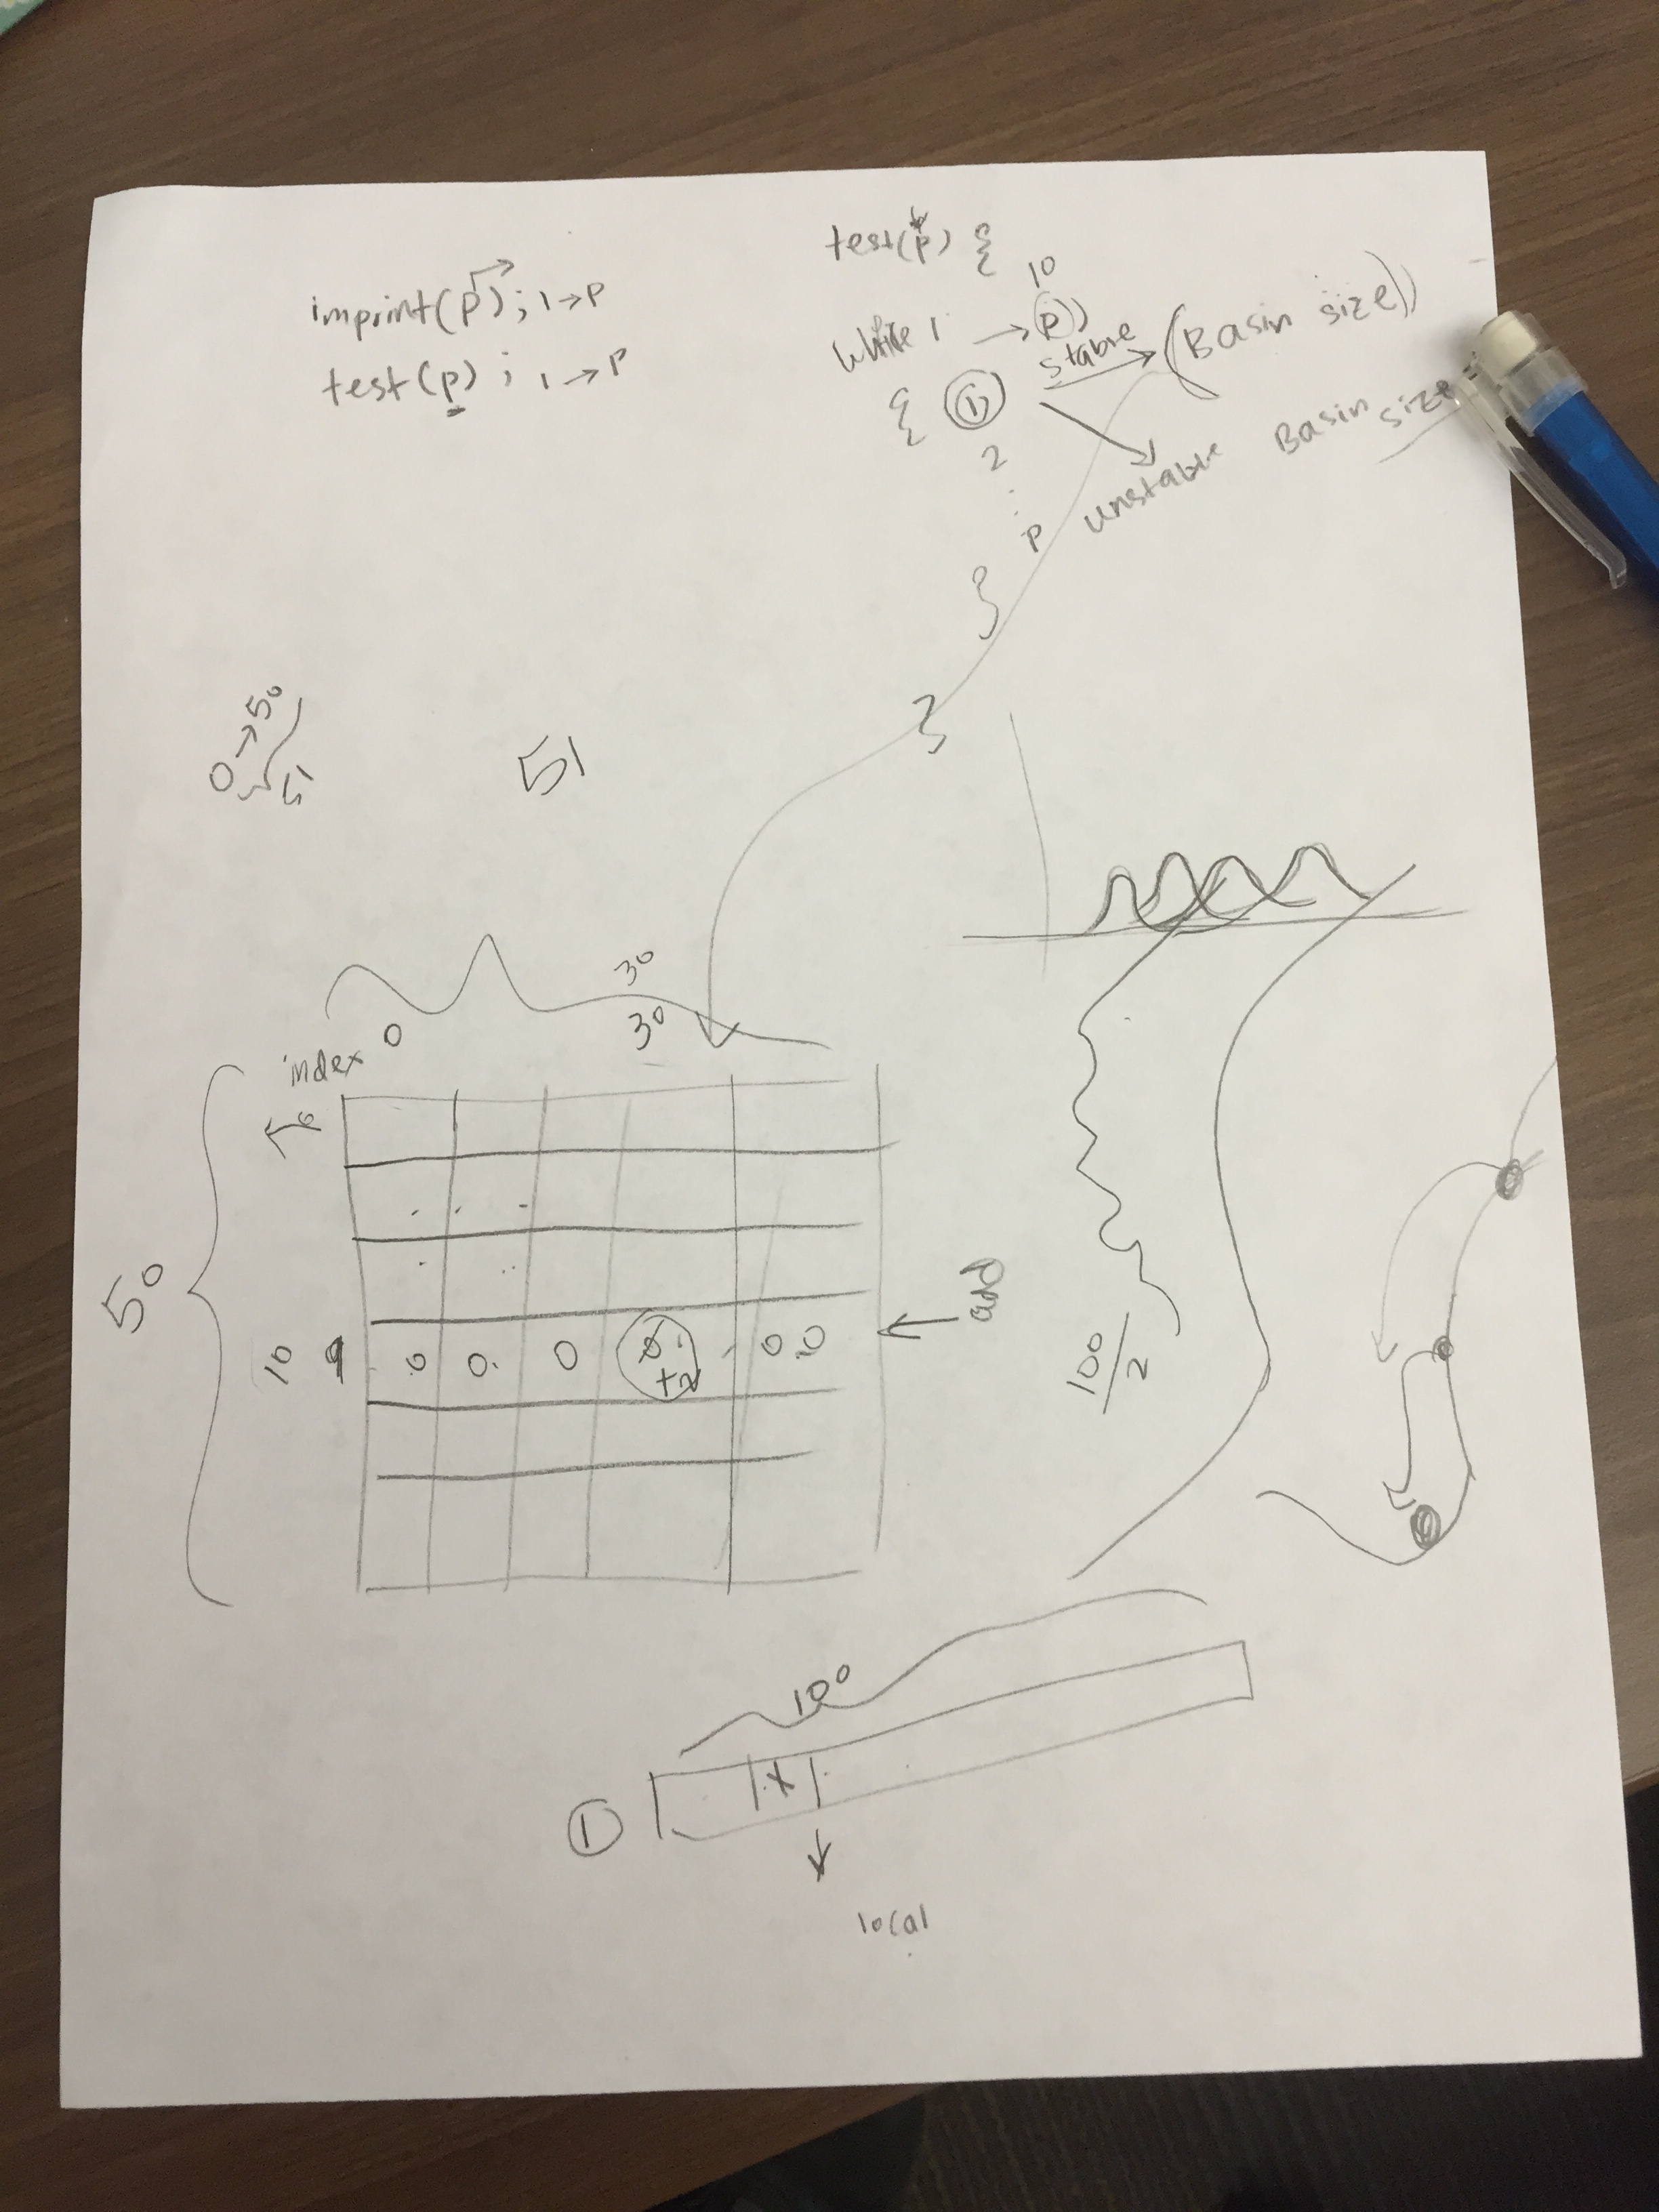 imprint(p); 1→p
test(p); 1→p
test(p) {
10
while 1 → p)
stable → (Basin size)
{ 1
unstable Basin size
2
p
}
}
0→50
51
51
30
30
index 0
50
10 9 0 0. 0 +2 0 0
← add
100/2
100
1 x
local